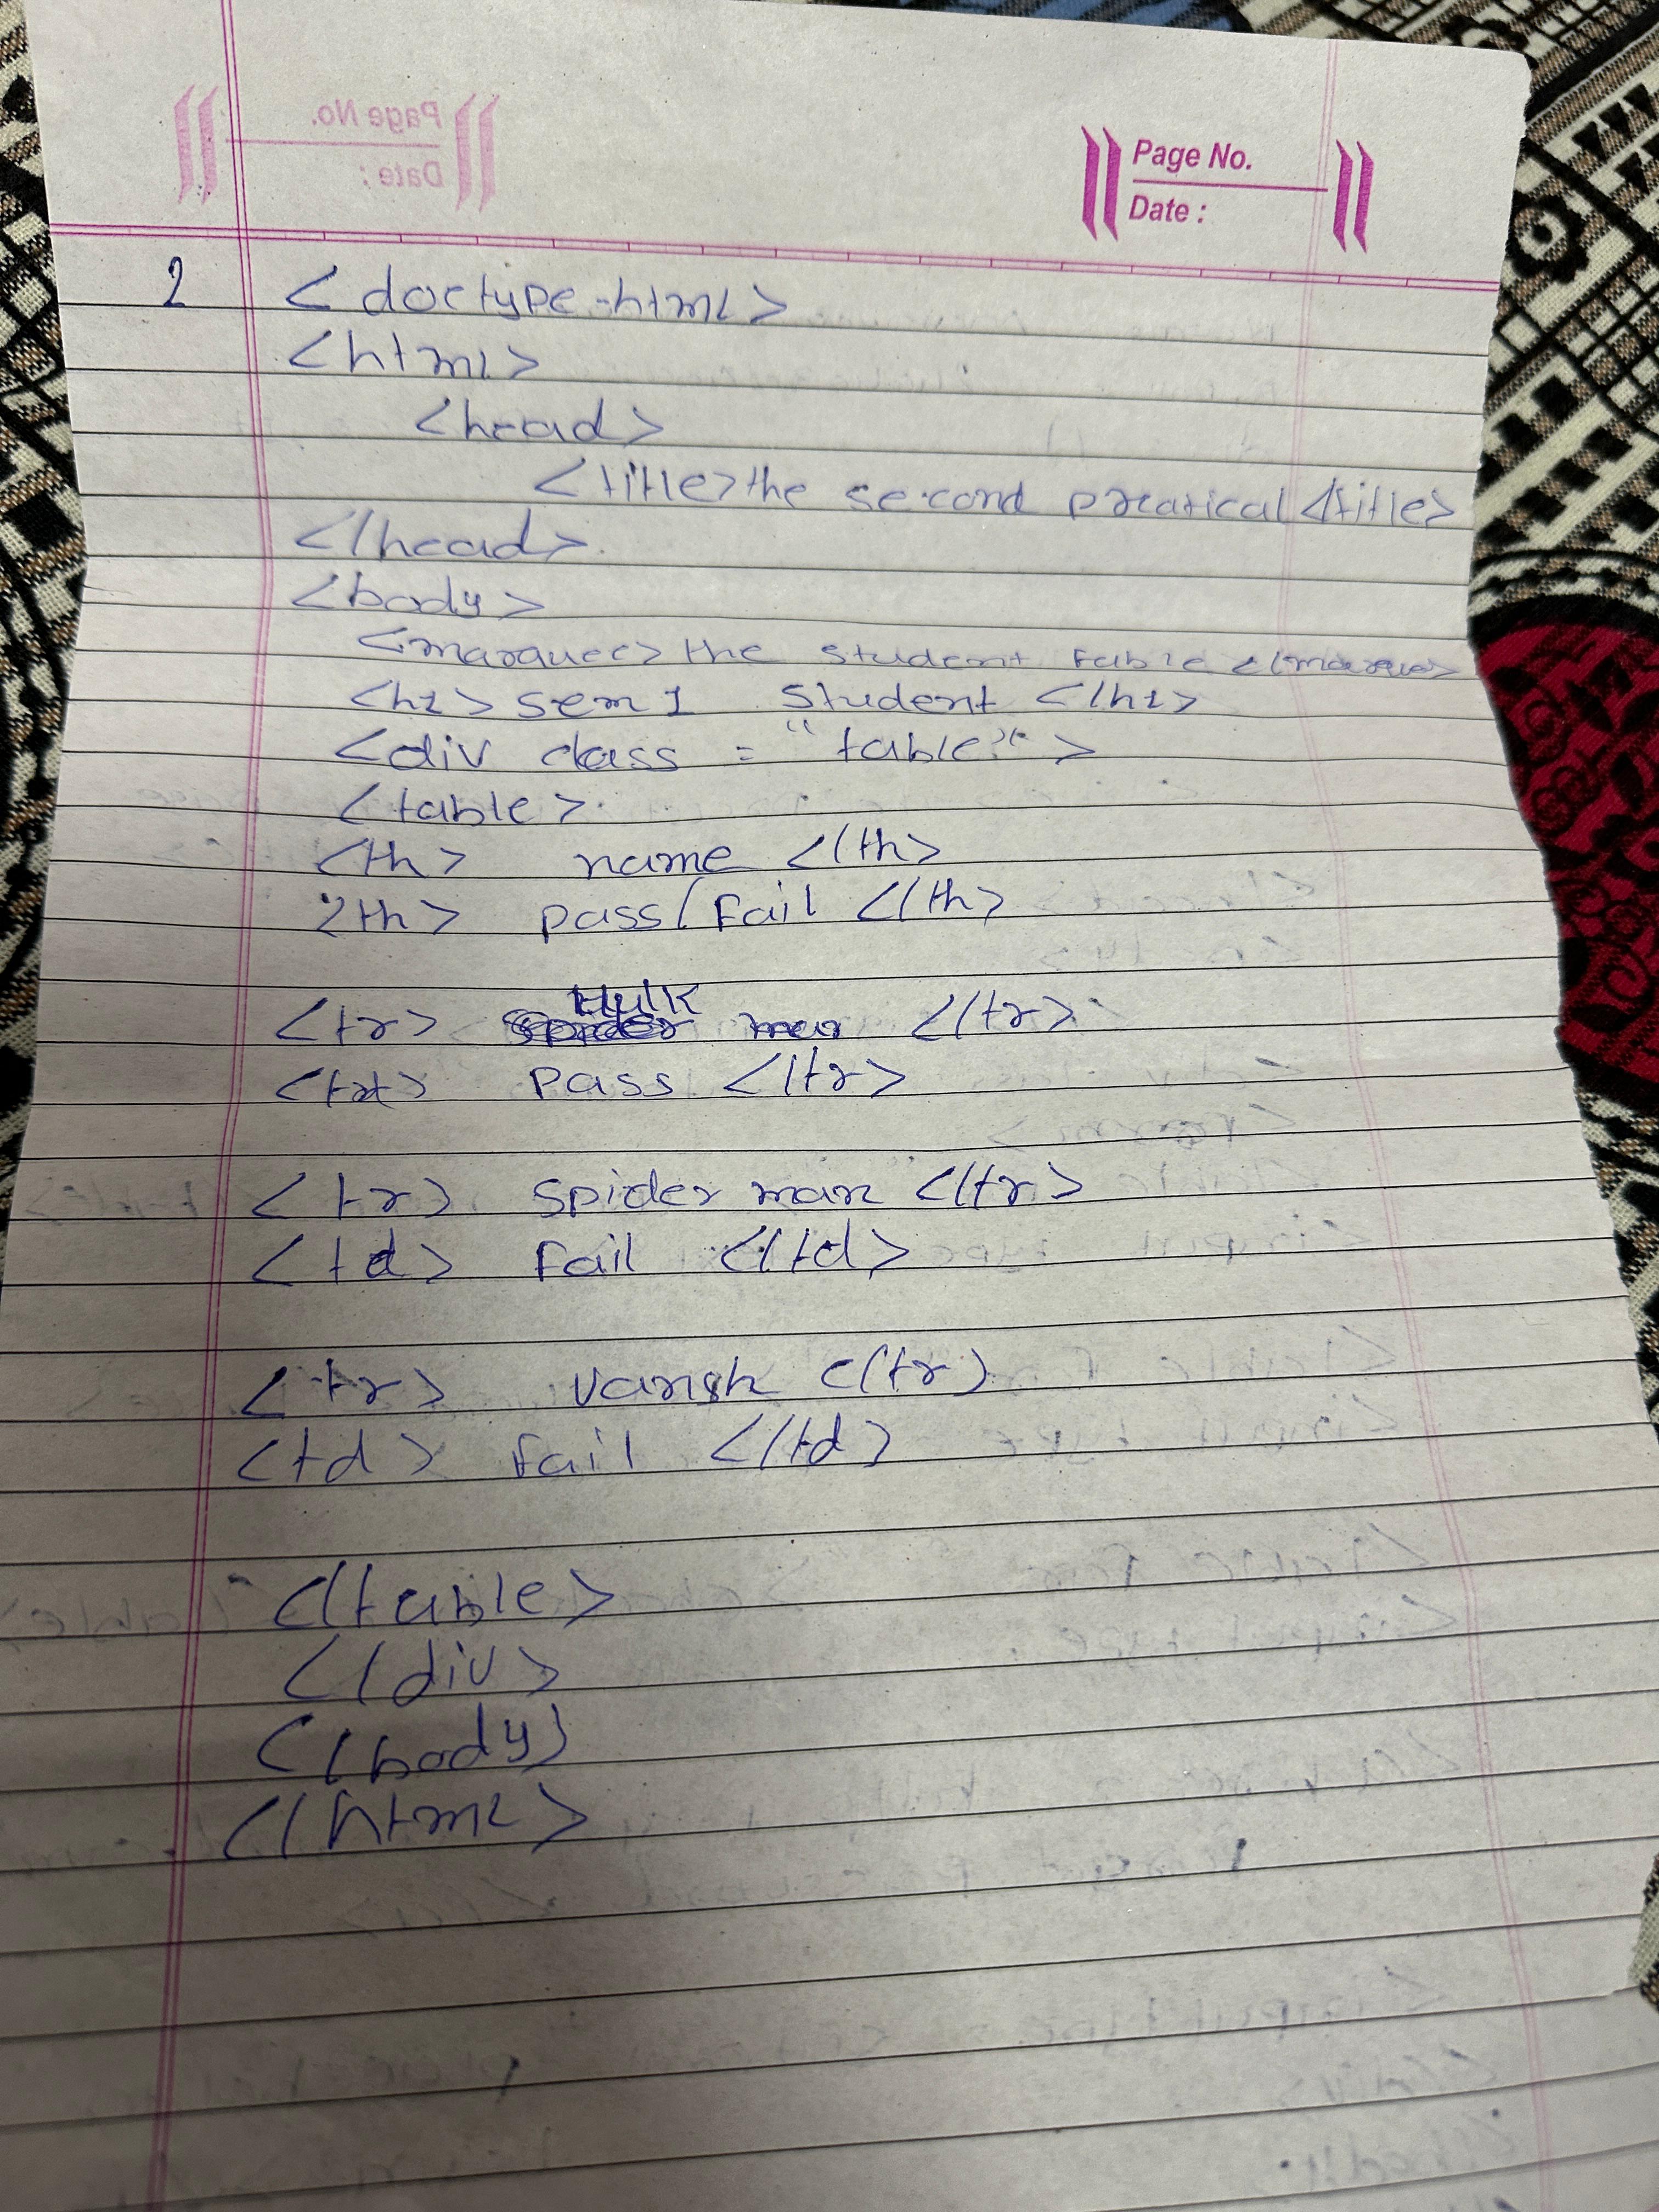 Page No.
Date :
2 < doctype-html>
<html>
<head>
<title>the second preatical </title>
</head>
<body>
<marquee> the student table </marque>
<h1> sem 1 Student </h1>
<div class = "table">
<table>
<th> name </th>
<th> pass/Fail </th>
Hulk
<tr> man </tr>
Pass </tr>
<tr> spider man </tr>
<td> Fail </td>
<tr> vansh </tr>
<td> fail </td>
</table>
</div>
</body>
</html>